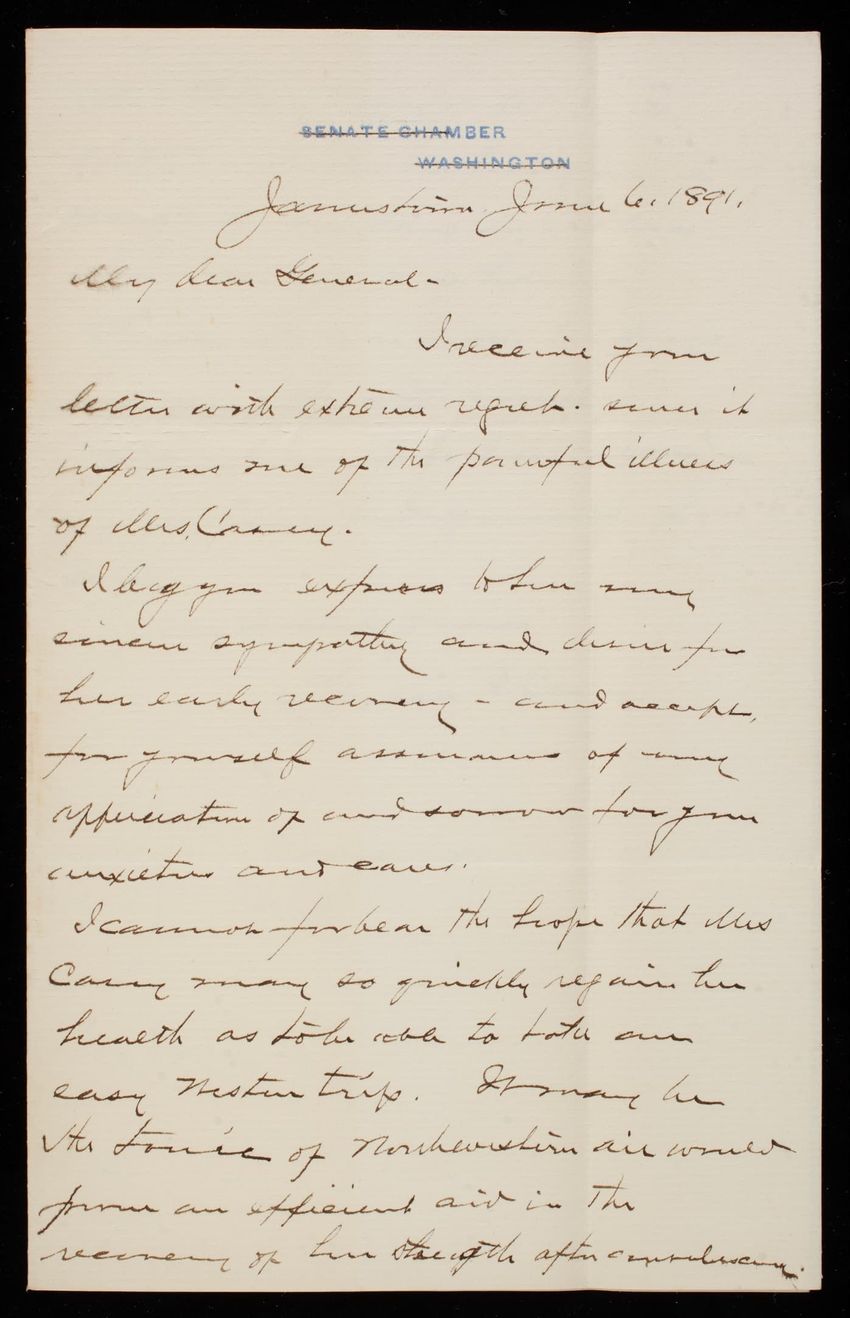 SENATE CHAMBER
WASHINGTON
Jamestown June 6, 1891.
My dear General-
I receive your
letter with extreme regret. since it
informs me of the painful illness
of Mrs. Casey.
I beg you express to her my
sincere sympathy and desire for
her early recovery - and accept,
for yourself assurances of my
appreciation of and sorrow for your
anxieties and cares.
I cannot forbear the hope that Mrs
Casey may so quickly regain her
health as to be able to take an
easy Western trip. It may be
the tonic of Northwestern air would
prove an efficient aid in the
recovery of her strength after convalescency.